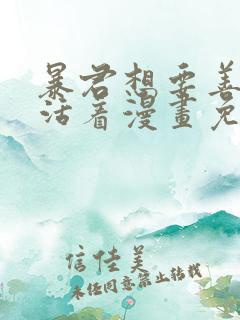 暴君想要善
活看漫畫免
信佳美
未经同意禁止转载